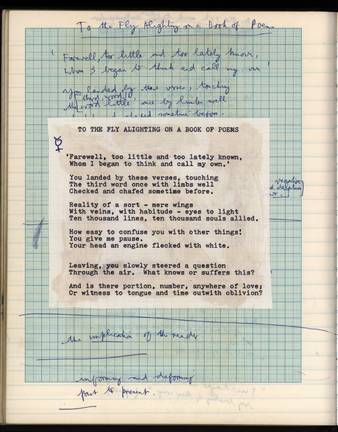 To the Fly Alighting on a Book of Poems
'Farewell, too little and too lately known,
Whom I began to think and call my own.'
You landed by these verses, touching
The third word
little one by limbs well
TO THE FLY ALIGHTING ON A BOOK OF POEMS
'Farewell, too little and too lately known,
Whom I began to think and call my own.'
You landed by these verses, touching
The third word once with limbs well
Checked and chafed sometime before.
Reality of a sort - mere wings
With veins, with habitude - eyes to light
Ten thousand lines, ten thousand souls allied.
How easy to confuse you with other things!
You give me pause.
Your head an engine flecked with white.
Leaving, you slowly steered a question
Through the air. What knows or suffers this?
And is there portion, number, anywhere of love;
Or witness to tongue and time outwith oblivion?
the implication of the reader
informing and deforming
past to present.